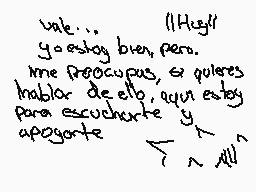 vale... ||Hug||
yo estoy bien, pero.
me preocupas, si quieres
hablar de ello, aqui estoy
para escucharte y
apoyarte